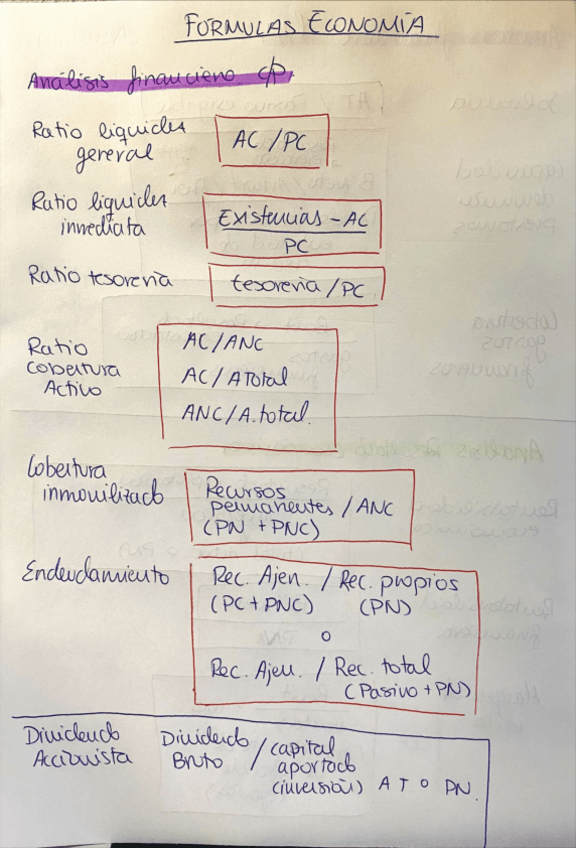 FÓRMULAS ECONOMÍA
Análisis financiero c/p.
Ratio liquidez
general
AC / PC
Ratio liquidez
inmediata
Existencias - AC
PC
Ratio tesorería
tesorería / PC
Ratio
Cobertura
Activo
AC / ANC
AC / A Total
ANC / A. total.
Cobertura
inmovilizado
Recursos
permanentes / ANC
(PN + PNC)
Endeudamiento
Rec. Ajen. / Rec. propios
(PC + PNC) (PN)
o
Rec. Ajen. / Rec. total
(Pasivo + PN)
Dividendo
Accionista
Dividendo
Bruto
/ capital
aportado
(inversión) A T O PN.